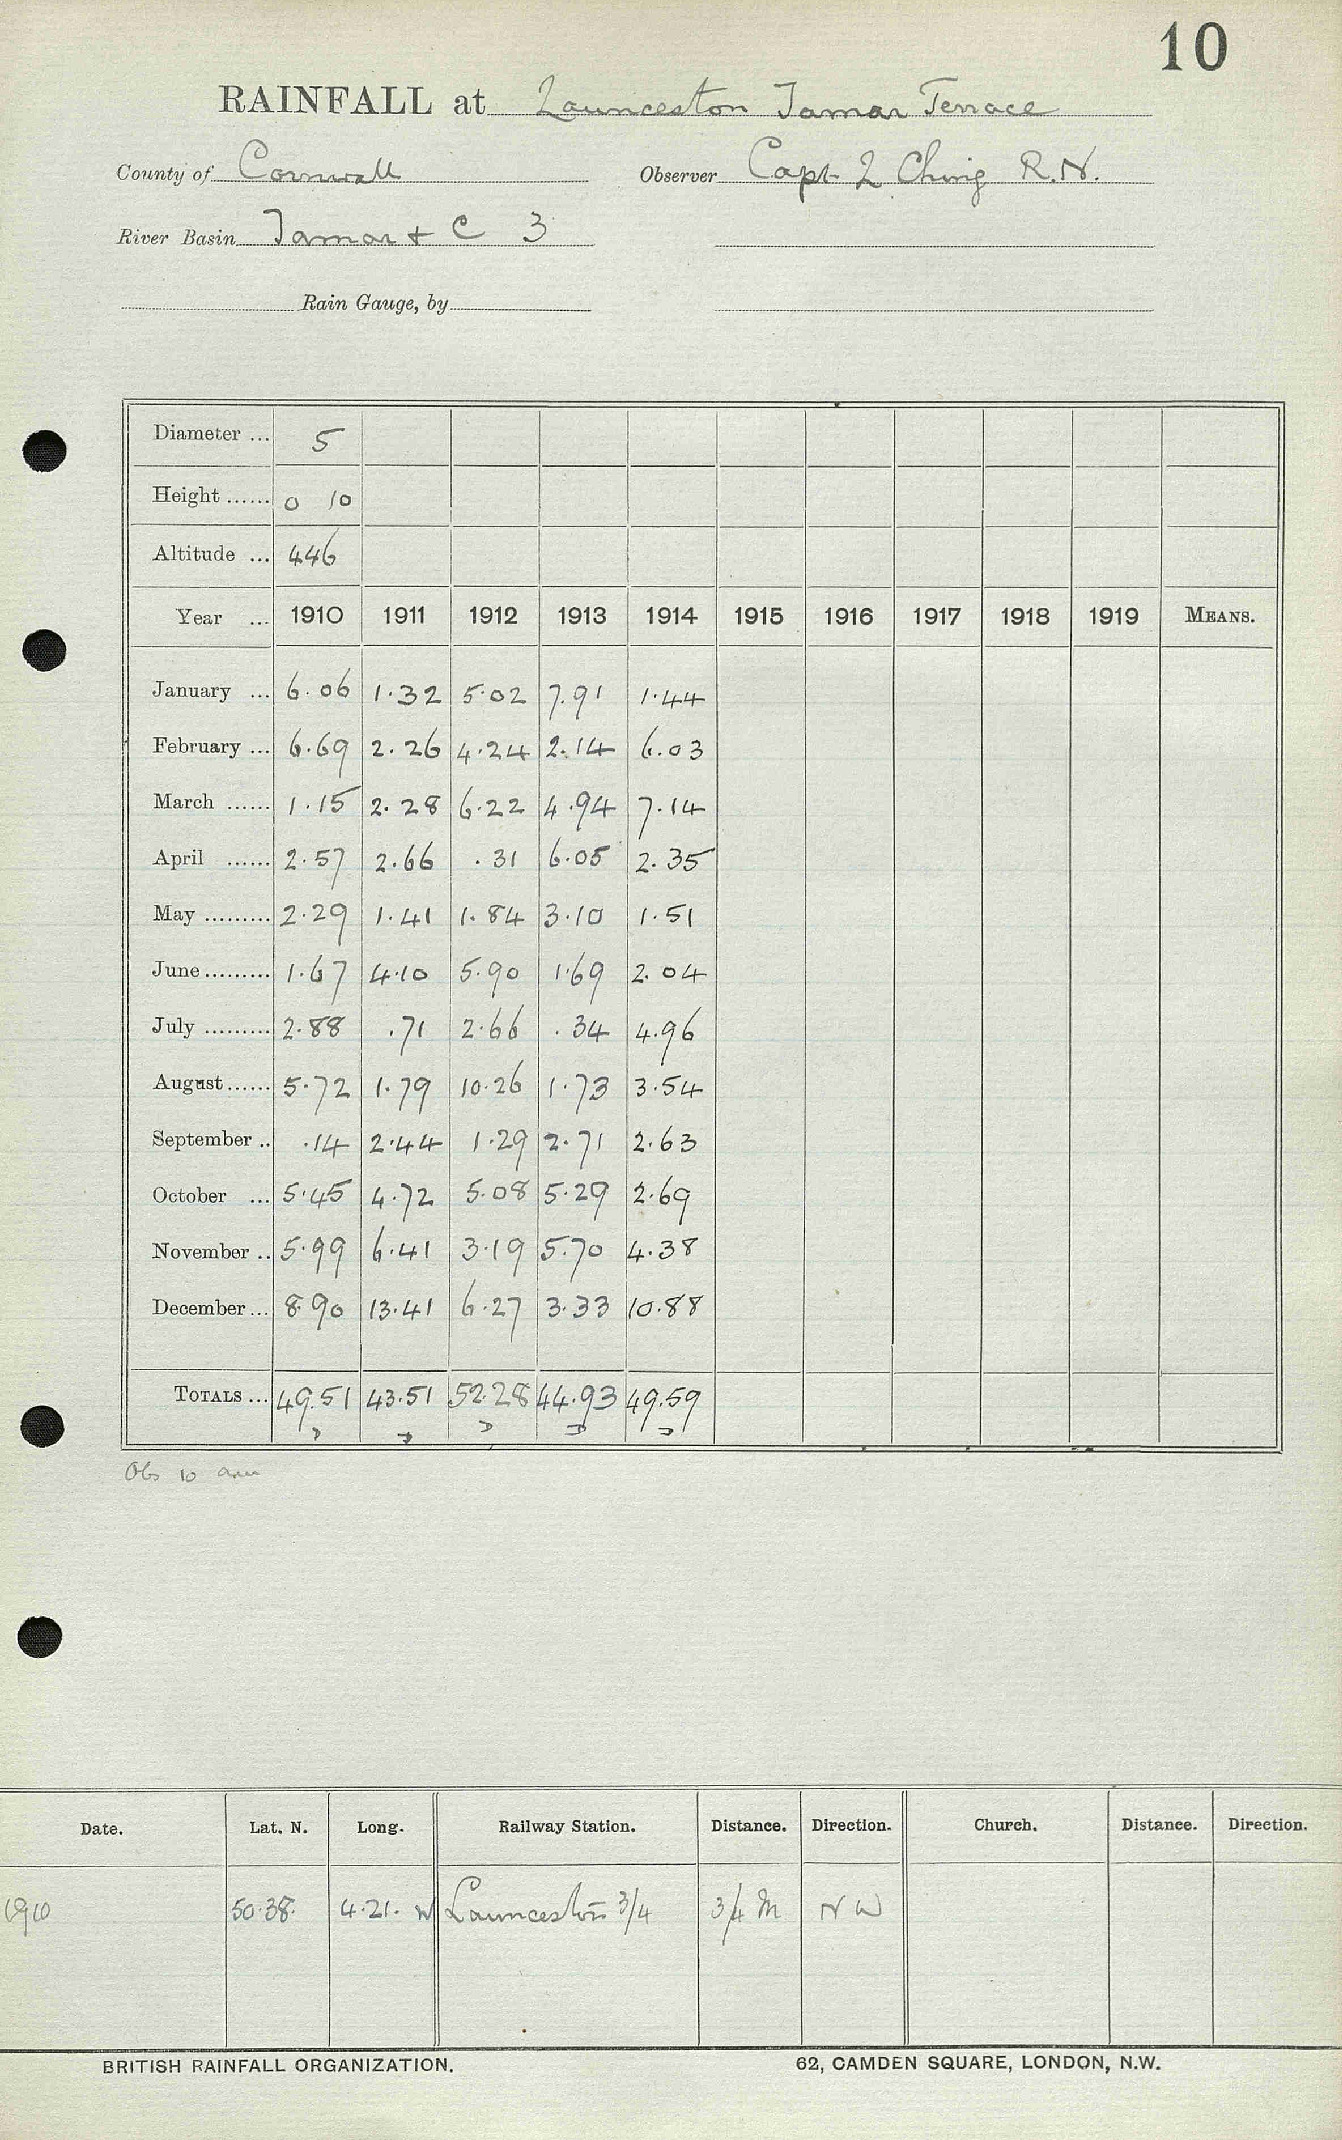 10
RAINFALL at Launceston Tamar Terrace
County of Cornwall Observer Capt L Ching R.N.
River Basin Tamar + C 3
Rain Gauge, by
Diameter ... 5
Height ...... 0 10
Altitude ... 446
Year ... 1910 1911 1912 1913 1914 1915 1916 1917 1918 1919 MEANS.
January ... 6.06 1.32 5.02 7.91 1.44
February ... 6.69 2.26 4.24 2.14 6.03
March ...... 1.15 2.28 6.22 4.94 7.14
April ...... 2.57 2.66 .31 6.05 2.35
May ......... 2.29 1.41 1.84 3.10 1.51
June ......... 1.67 4.10 5.90 1.69 2.04
July ......... 2.88 .71 2.66 .34 4.96
August ...... 5.72 1.79 10.26 1.73 3.54
September .. .14 2.44 1.29 2.71 2.63
October ... 5.45 4.72 5.08 5.29 2.69
November .. 5.99 6.41 3.19 5.70 4.38
December ... 8.90 13.41 6.27 3.33 10.88
TOTALS ... 49.51 43.51 52.28 44.93 49.59
Obs 10
Date. Lat. N. Long. Railway Station. Distance. Direction. Church. Distance. Direction.
1910 50.38. 4.21. W Launceston 3/4 3/4 M N W
BRITISH RAINFALL ORGANIZATION. 62, CAMDEN SQUARE, LONDON, N.W.